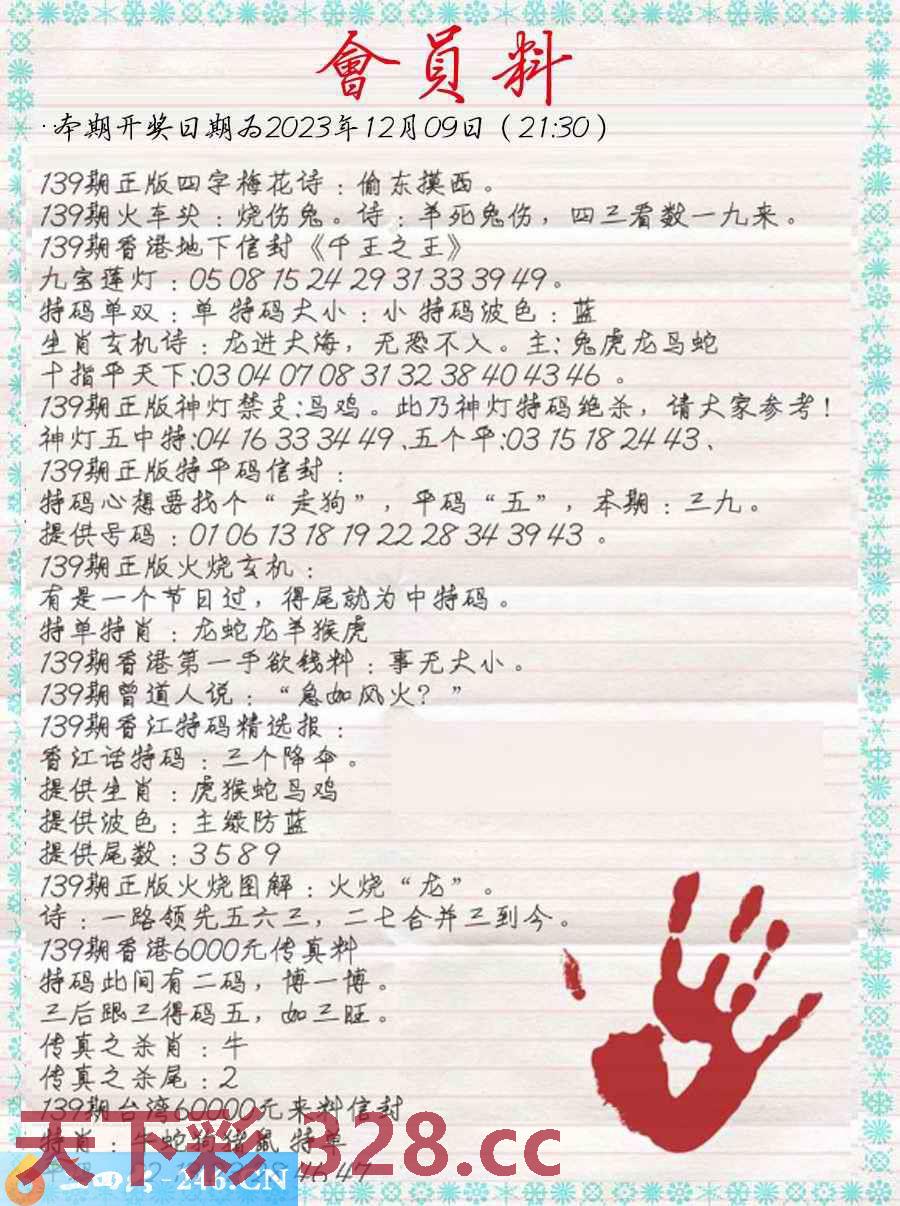 會員料
·本期开奖日期为2023年12月09日（21:30）
139期正版四字梅花诗：偷东摸西。
139期火车头：烧伤兔。诗：羊死兔伤，四三看数一九来。
139期香港地下信封《千王之王》
九宝莲灯：05 08 15 24 29 31 33 39 49。
特码单双：单 特码大小：小 特码波色：蓝
生肖玄机诗：龙进大海，无恐不入。主：兔虎龙马蛇
十指平天下:03 04 07 08 31 32 38 40 43 46 。
139期正版神灯禁支:马鸡。此乃神灯特码绝杀，请大家参考！
神灯五中特:04 16 33 34 49 、五个平:03 15 18 24 43、
139期正版特平码信封：
特码心想要找个“走狗”，平码“五”，本期：三九。
提供号码：01 06 13 18 19 22 28 34 39 43 。
139期正版火烧玄机：
有是一个节目过，得尾就为中特码。
特单特肖：龙蛇龙羊猴虎
139期香港第一手欲钱料：事无大小。
139期曾道人说：“急如风火？”
139期香江特码精选报：
香江话特码：三个降伞。
提供生肖：虎猴蛇马鸡
提供波色：主绿防蓝
提供尾数：3 5 8 9
139期正版火烧图解：火烧“龙”。
诗：一路领先五六三，二七合并三到今。
139期香港6000元传真料
特码此间有二码，博一博。
三后跟三得码五，如三旺。
传真之杀肖：牛
传真之杀尾：2
139期台湾60000元来料信封
特肖：牛蛇狗猪鼠 特单
46,47
天下彩328.cc
-246.CN